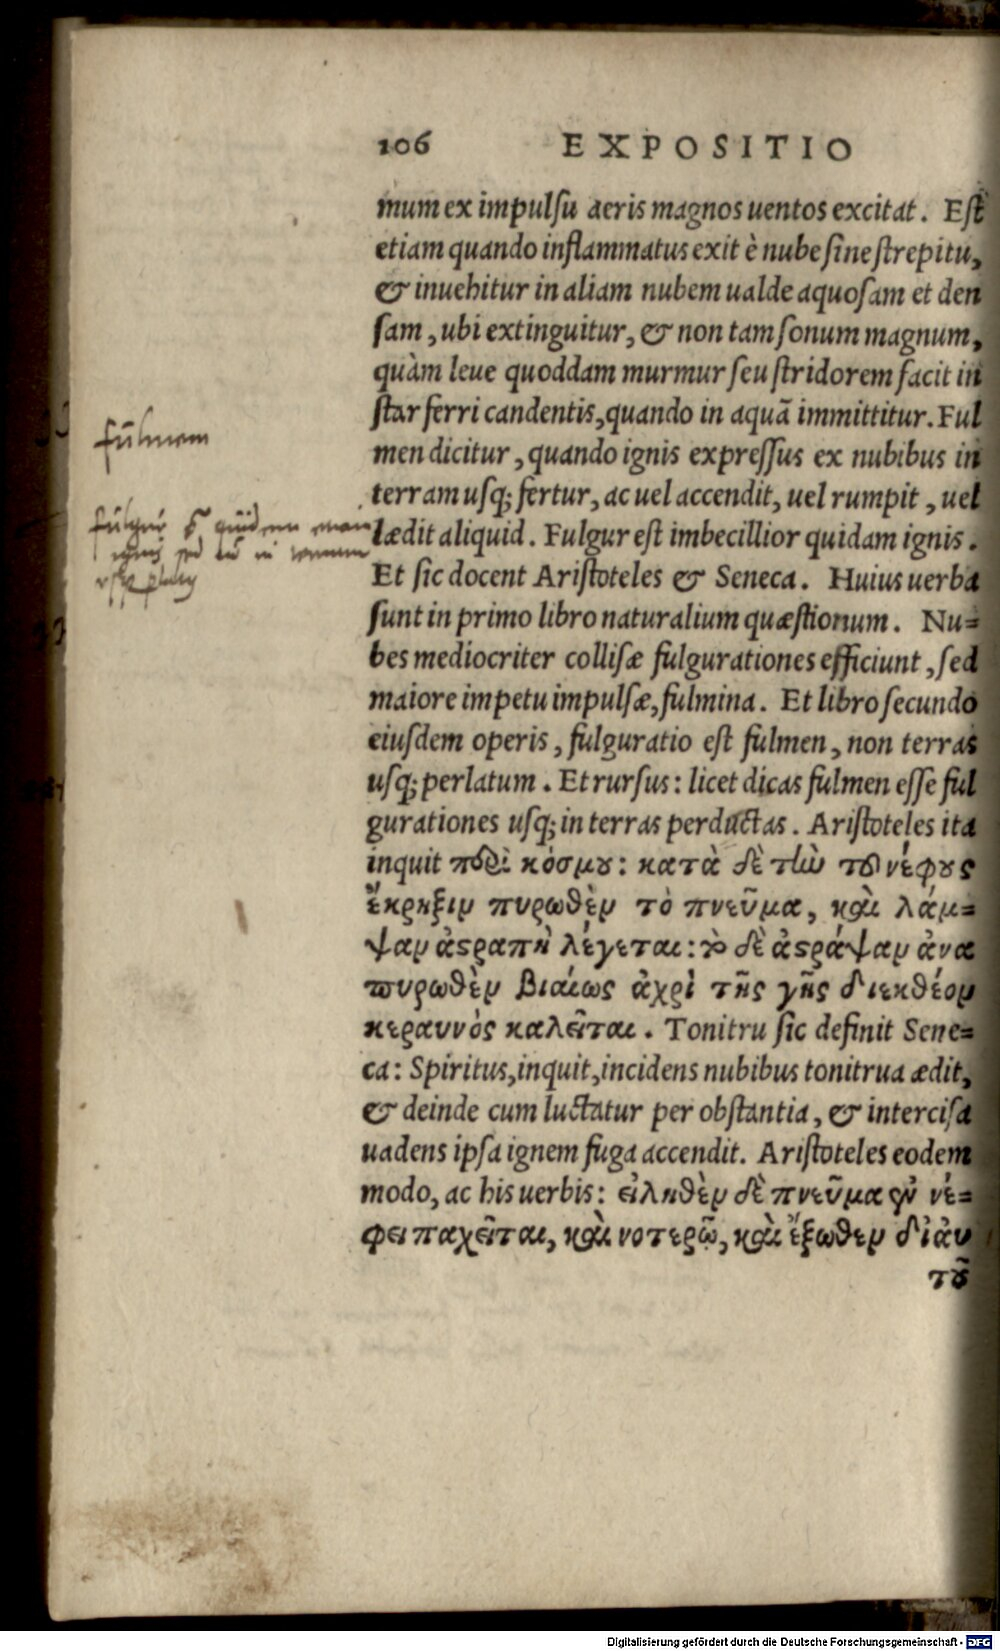 106 EXPOSITIO
mum ex impulſu aeris magnos uentos excitat. Eſt
etiam quando inflammatus exit è nube ſine ſtrepitu,
& inuehitur in aliam nubem ualde aquoſam et den
ſam, ubi extinguitur, & non tam ſonum magnum,
quàm leue quoddam murmur ſeu ſtridorem facit in
ſtar ferri candentis, quando in aquã immittitur. Ful
men dicitur, quando ignis expreſſus ex nubibus in
terram uſq; fertur, ac uel accendit, uel rumpit, uel
lædit aliquid. Fulgur eſt imbecillior quidam ignis.
Et ſic docent Ariſtoteles & Seneca. Huius uerba
ſunt in primo libro naturalium quæſtionum. Nu=
bes mediocriter colliſæ fulgurationes efficiunt, ſed
maiore impetu impulſæ, fulmina. Et libro ſecundo
eiuſdem operis, fulguratio eſt fulmen, non terras
uſq; perlatum. Et rurſus: licet dicas fulmen eſſe ful
gurationes uſq; in terras perductas. Ariſtoteles ita
inquit περὶ κόσμου: κατὰ δὲ τὴν τοῦ νέφους
ἔκρηξιν πυρωθὲν τὸ πνεῦμα, καὶ λάμ=
ψαν ἀςραπὴ λέγεται: τὸ δὲ ἀςράψαν ἀνα
πυρωθὲν βιαίως ἀχρὶ τῆς γῆς διεκθέον
κεραυνὸς καλεῖται. Tonitru ſic definit Sene=
ca: Spiritus, inquit, incidens nubibus tonitrua ædit,
& deinde cum luctatur per obſtantia, & interciſa
uadens ipſa ignem fuga accendit. Ariſtoteles eodem
modo, ac his uerbis: εἰληθὲν δὲ πνεῦμα ἐν νέ=
φει παχεῖται, καὶ νοτερῷ, καὶ ἔξωθεν δἰαυ
τοῦ
fulmen
Digitalisierung gefördert durch die Deutsche Forschungsgemeinschaft - DFG